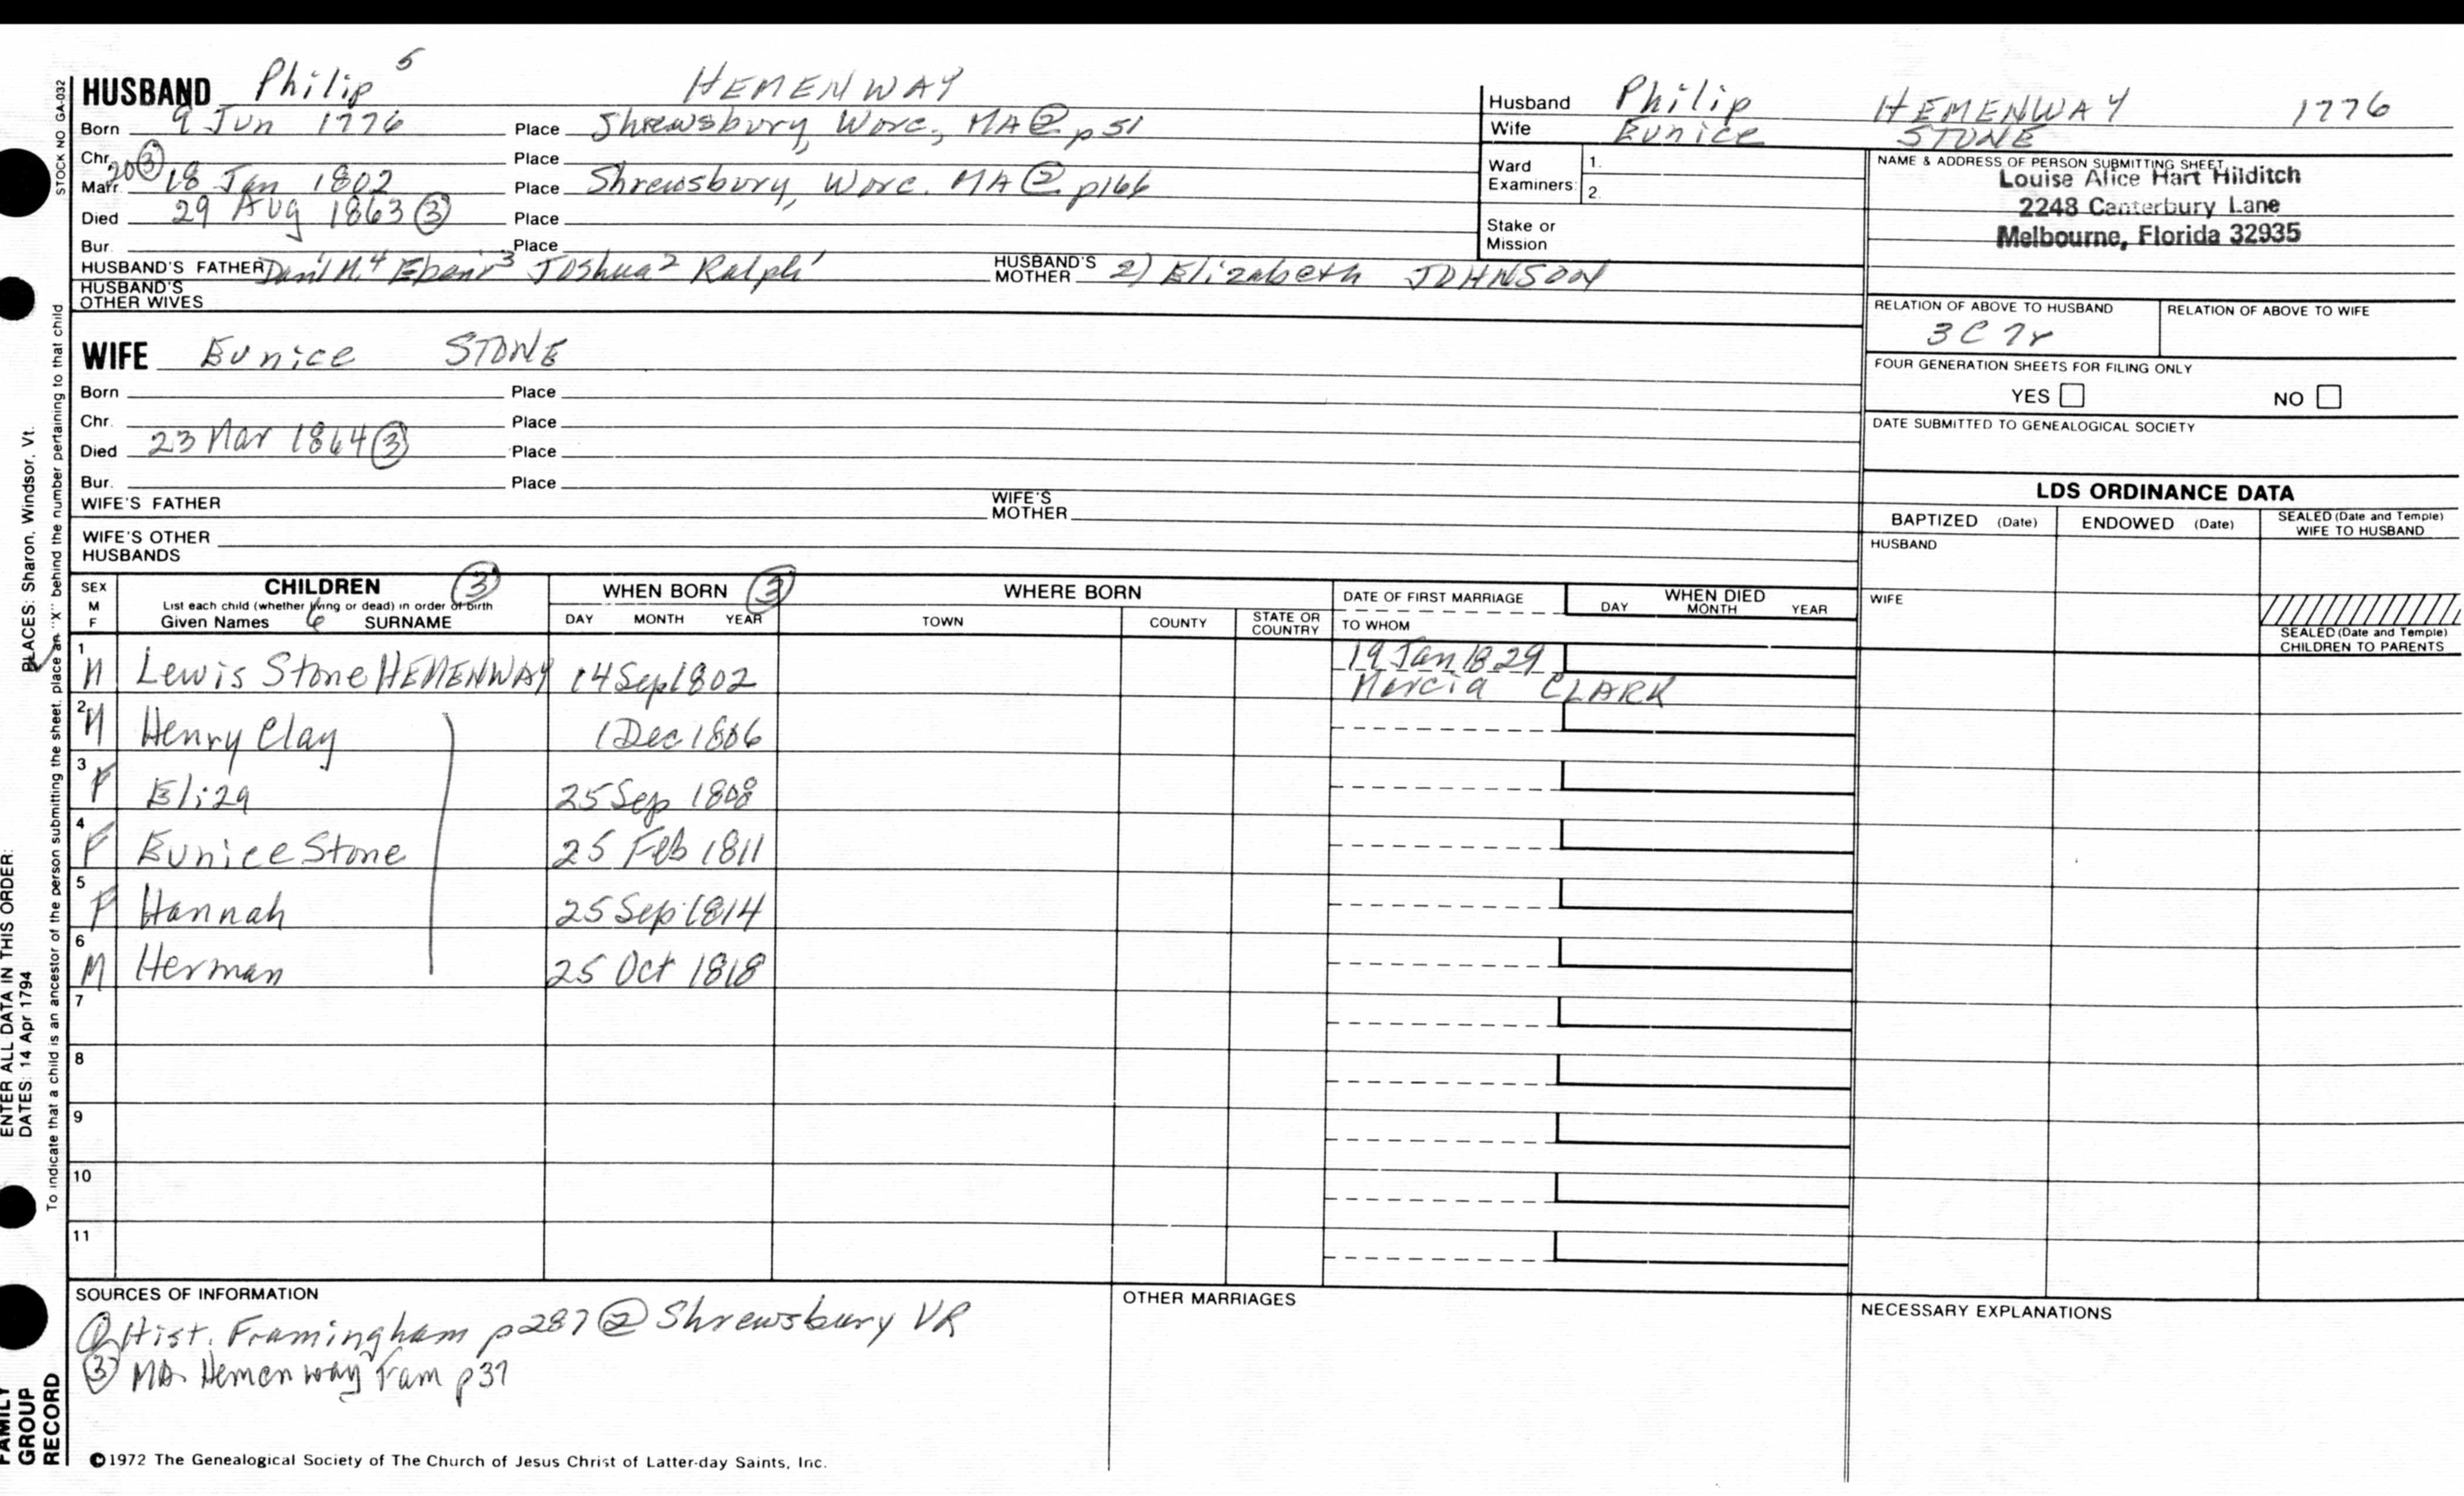 HUSBAND Philip 5 HEMENWAY
Born 9 Jun 1776 Place Shrewsbury, Worc, MA ② p51
Chr. Place
Marr. 20 ③ 18 Jan 1802 Place Shrewsbury, Worc. MA ② p166
Died 29 Aug 1863 ③ Place
Bur. Place
HUSBAND'S FATHER Danil M.4 Ebenr3 Joshua2 Ralph1 HUSBAND'S MOTHER 2) Elizabeth JOHNSON
HUSBAND'S OTHER WIVES
Husband Philip HEMENWAY 1776
Wife Eunice STONE
Ward Examiners: 1.
2.
Stake or Mission
NAME & ADDRESS OF PERSON SUBMITTING SHEET
Louise Alice Hart Hilditch
2248 Canterbury Lane
Melbourne, Florida 32935
RELATION OF ABOVE TO HUSBAND RELATION OF ABOVE TO WIFE
3C 7r
FOUR GENERATION SHEETS FOR FILING ONLY
YES NO
DATE SUBMITTED TO GENEALOGICAL SOCIETY
WIFE Eunice STONE
Born Place
Chr. Place
Died 23 Mar 1864 ③ Place
Bur. Place
WIFE'S FATHER WIFE'S MOTHER
WIFE'S OTHER HUSBANDS
LDS ORDINANCE DATA
BAPTIZED (Date) ENDOWED (Date) SEALED (Date and Temple) WIFE TO HUSBAND
HUSBAND
WIFE
SEALED (Date and Temple) CHILDREN TO PARENTS
SEX M F CHILDREN ③ WHEN BORN ③ WHERE BORN DATE OF FIRST MARRIAGE WHEN DIED
List each child (whether living or dead) in order of birth DAY MONTH YEAR
Given Names 6 SURNAME DAY MONTH YEAR TOWN COUNTY STATE OR COUNTRY TO WHOM
1 M Lewis Stone HEMENWAY 14 Sep 1802 19 Jan 1829
Marcia CLARK
2 M Henry Clay 1 Dec 1806
3 F Eliza 25 Sep 1808
4 F Eunice Stone 25 Feb 1811
5 F Hannah 25 Sep 1814
6 M Herman 25 Oct 1818
7
8
9
10
11
SOURCES OF INFORMATION
① Hist. Framingham p287 ② Shrewsbury VR
③ MA Hemenway Fam p37
OTHER MARRIAGES
NECESSARY EXPLANATIONS
©1972 The Genealogical Society of The Church of Jesus Christ of Latter-day Saints, Inc.
STOCK NO. GA-032
To indicate that a child is an ancestor of the person submitting the sheet, place an "X" behind the number pertaining to that child
PLACES: Sharon, Windsor, Vt.
ENTER ALL DATA IN THIS ORDER:
DATES: 14 Apr 1794
FAMILY
GROUP
RECORD